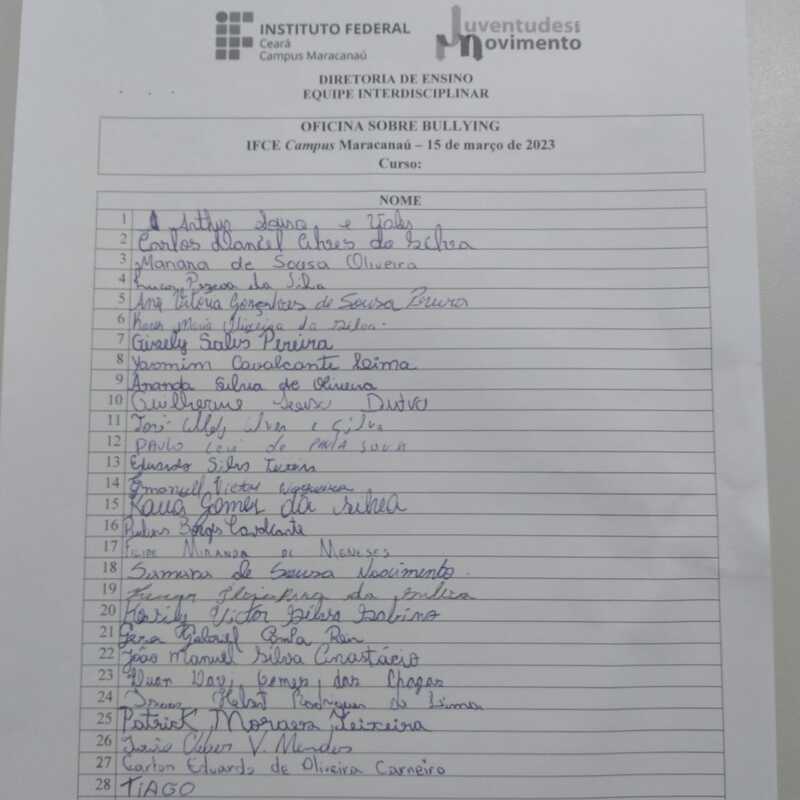 INSTITUTO FEDERAL
Ceará
Campus Maracanaú
Juventudes em
Movimento
DIRETORIA DE ENSINO
EQUIPE INTERDISCIPLINAR
OFICINA SOBRE BULLYING
IFCE Campus Maracanaú – 15 de março de 2023
Curso:
NOME
1 Arthur e
2 Carlos Daniel Alves da Silva
3 Mariana de Sousa Oliveira
4 Lucas Pessoa da Silva
5 Ana Vitória Gonçalves de Sousa Pereira
6 Maria da Silva
7 Gisely Sales Pereira
8 Yasmim Cavalcante Leima
9 Ananda Silva de Oliveira
10 Guilherme Dutra
11 José e Silva
12 PAULO de PAULA
13 Eduardo Silva
14 Victor Nogueira
15 Kauã Gomes da Silva
16 Rubens Borges Cavalcante
17 FELIPE MIRANDA DE MENESES
18 Samara de Sousa Nascimento
19 da
20 Victor Silva Sabino
21 Gabriel
22 João Manuel Silva Anastácio
23 Gomes das Chagas
24 Rodrigues de Lima
25 Patrick Moraes Teixeira
26 V. Mendes
27 Carlos Eduardo de Oliveira Carneiro
28 TIAGO